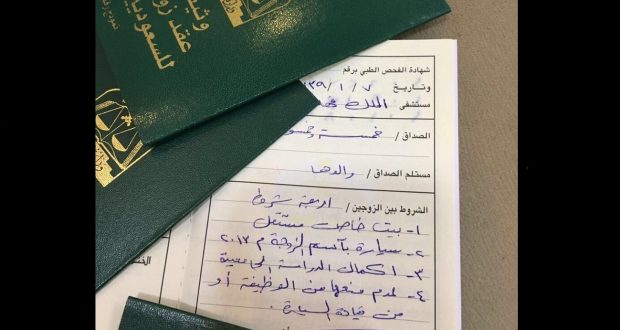 وثيقة
عقد زو
للسعودي
شهادة الفحص الطبي برقم
وتاريخ / ٧ / ١ / ٣٩
مستشفى الملك
الصداق / خمسة وخمسو
مستلم الصداق / والدها
الشروط بين الزوجين / اربعة شروط
١- بيت خاص مستقل
٢- سيارة بأسم الزوجة م ٢٠١٧
٣- اكمال الدراسة الجامعية
٤- عدم منعها من الوظيفة أو
من قيادة السيارة.